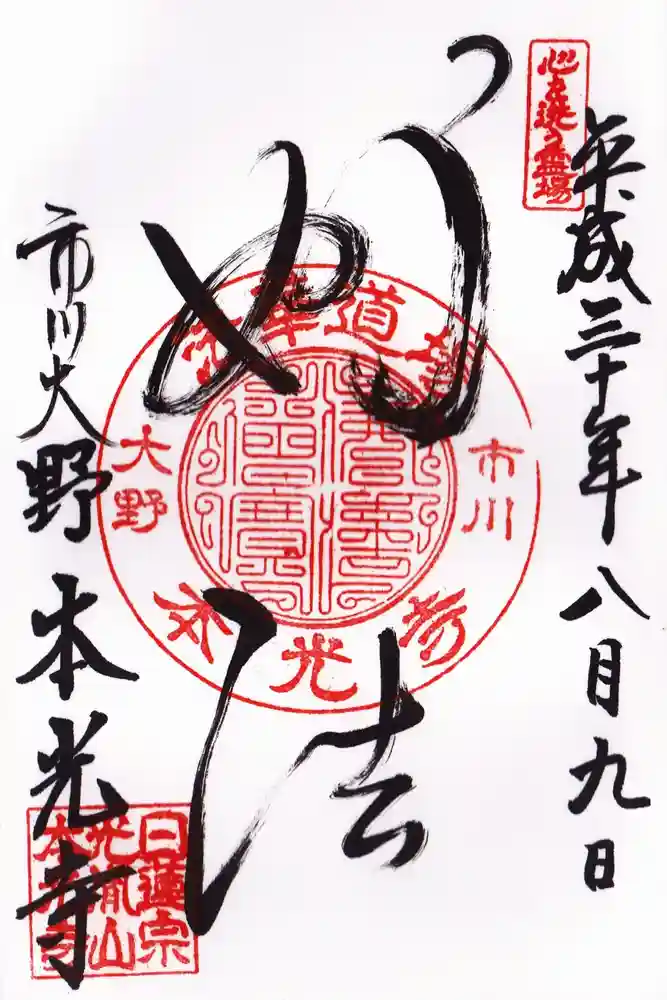 心を洗う霊場
平成三十年八月九日
妙法
法華道場
市川
大野
本光寺
市川大野 本光寺
日蓮宗
光胤山
本光寺